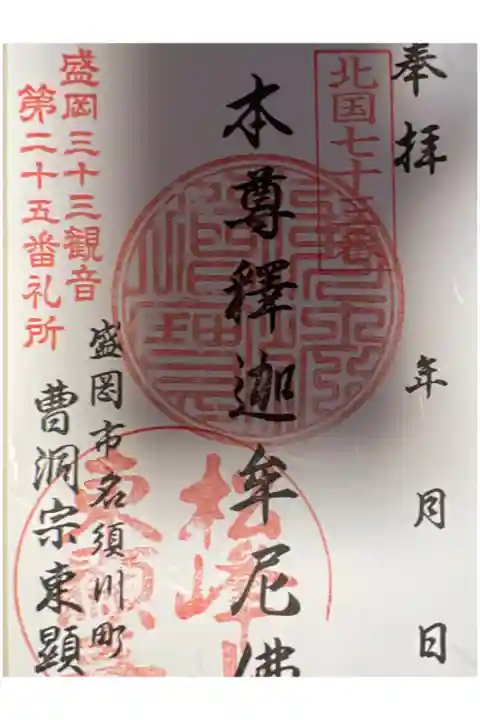 奉拝
年 月 日
北国七十五番
本尊釋迦牟尼佛
盛岡三十三観音
第二十五番礼所
盛岡市名須川町
曹洞宗東顕
松峰
東顕